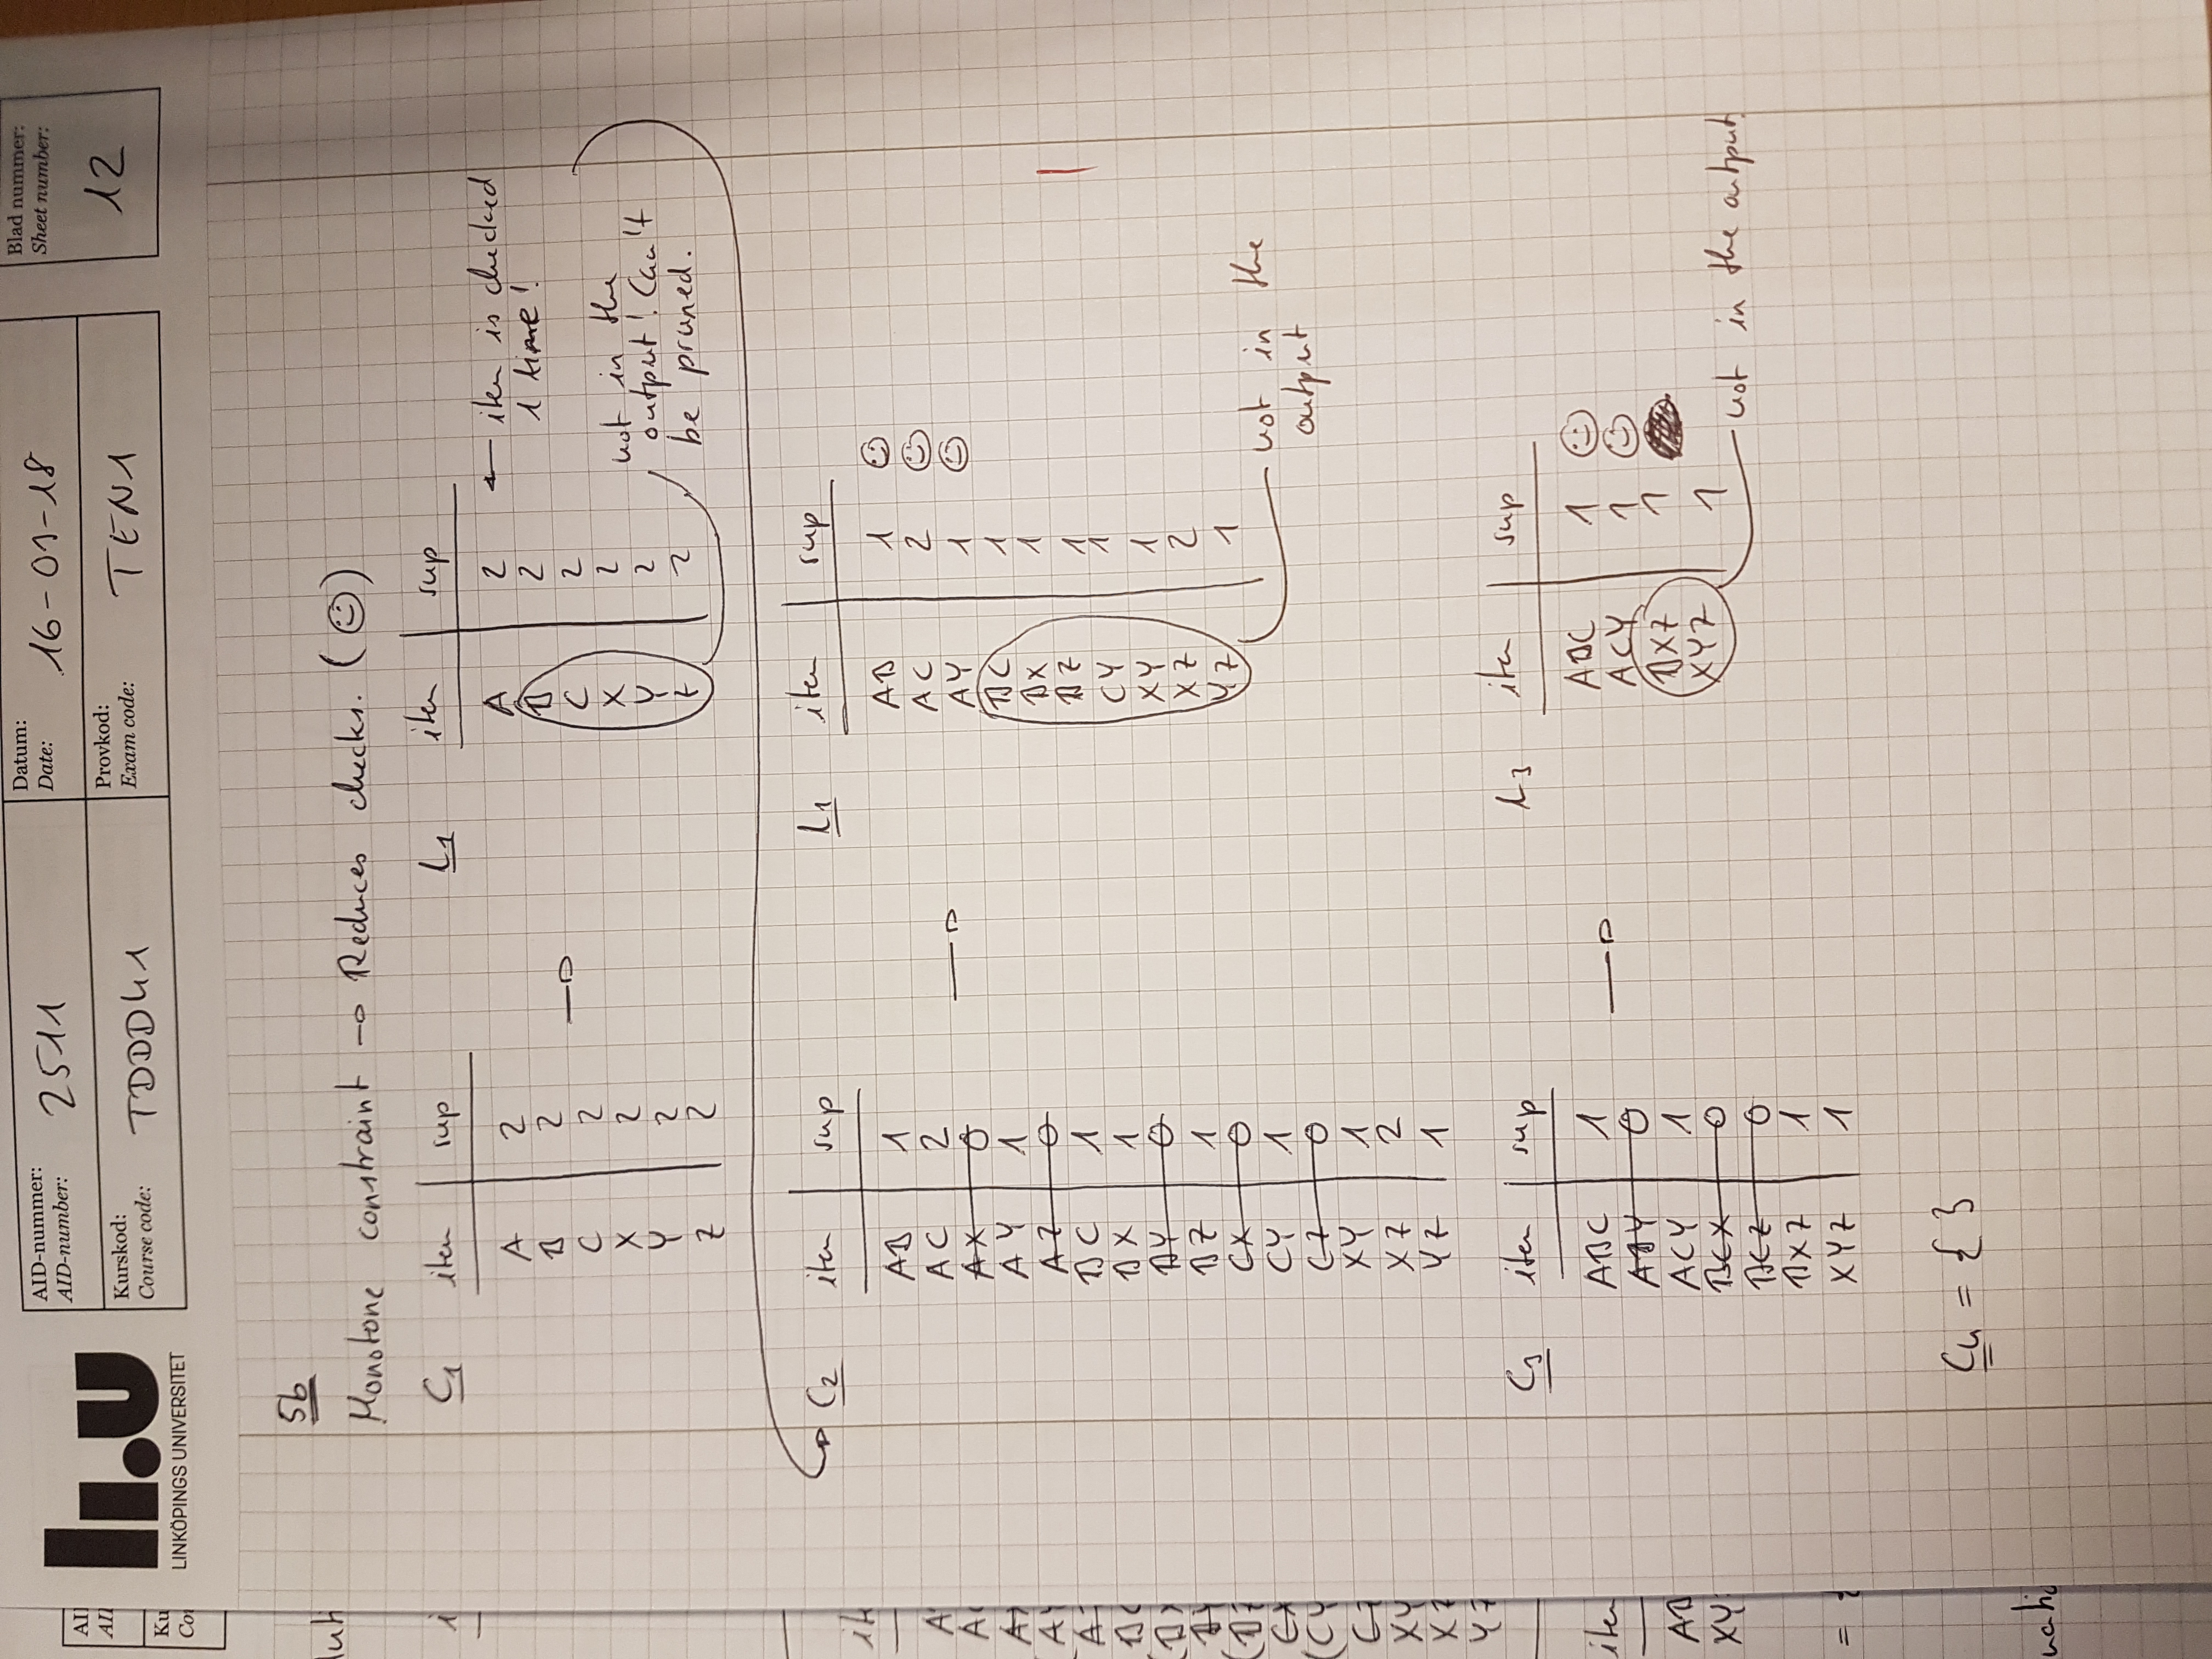 AID-nummer:
AID-number: 2511
Datum:
Date: 16-01-18
Blad nummer:
Sheet number:
12
Kurskod:
Course code: TDDD41
Provkod:
Exam code: TEN1
LiU
LINKÖPINGS UNIVERSITET
5b
Monotone constraint → Reduces checks. (☺)
C1 item sup
A 2
B 2
C 2
X 2
Y 2
Z 2
L1 item sup
A 2 ← item is checked
1 time!
B 2
C 2
X 2
Y 2
Z 2
not in the
output! Can't
be pruned.
C2 item sup
AB 1
AC 2
AX 0
AY 1
AZ 0
BC 1
BX 1
BY 0
BZ 1
CX 0
CY 1
CZ 0
XY 1
XZ 2
YZ 1
L1 item sup
AB 1 ☺
AC 2 ☺
AY 1 ☺
BC 1
BX 1
BZ 1
CY 1
XY 1
XZ 2
YZ 1
not in the
output
C3 item sup
ABC 1
ABY 0
ACY 1
BCX 0
BCZ 0
BXZ 1
XYZ 1
L3 item sup
ABC 1 ☺
ACY 1 ☺
BXZ 1
XYZ 1
not in the output.
C4 = { }